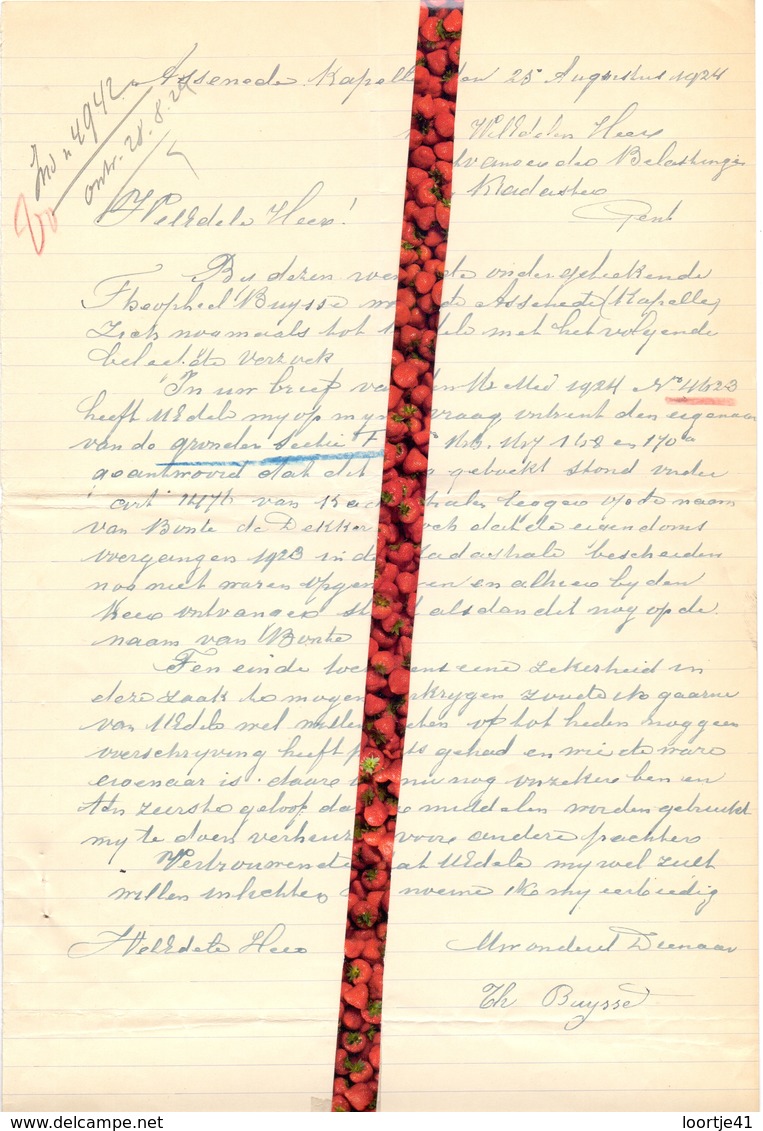 Ind n 4942
ontv. 28.8.24
Vo
Assenede Kapelle den 25 Augustus 1924
WelEdelen Heer
Belastingen
Kadaster
Gent
WelEdele Heer!
By dezen ondergeteekende
Theopheel Buysse Assenede (Kapelle)
Zich nogmaals tot met het volgende
beleefde verzoek
In uw brief van Mei 1924 No 4623
heeft UEdele my op myn vraag omtrent den eigenaar
van de gronden Sectie F 166. 167 168 en 170a
geantwoord dat dit geboekt stond onder
art 1476 van legger op de naam
van Bonte de Dekker och dat de eigendoms
overgangen 1923 in de kadastrale bescheiden
nog niet waren en alhier by den
Heer ontvanger als dan dit nog op de
naam van Bonte
Ten einde eene zekerheid in
deze zaak te mogen verkrygen zoude ik gaarne
van UEdele wel willen weten of tot heden nog geen
overschryving heeft plaats gehad en wie de ware
eigenaar is. daar nu nog onzeker ben en
ten zeerste geloof dat middelen worden gebruikt
my te doen verhuizen voor andere pachters
Vertrouwende dat UEdele my wel zult
willen inlichten noeme ik my eerbiedig
WelEdele Heer Uw onderd Dienaar
Th Buysse
loortje41